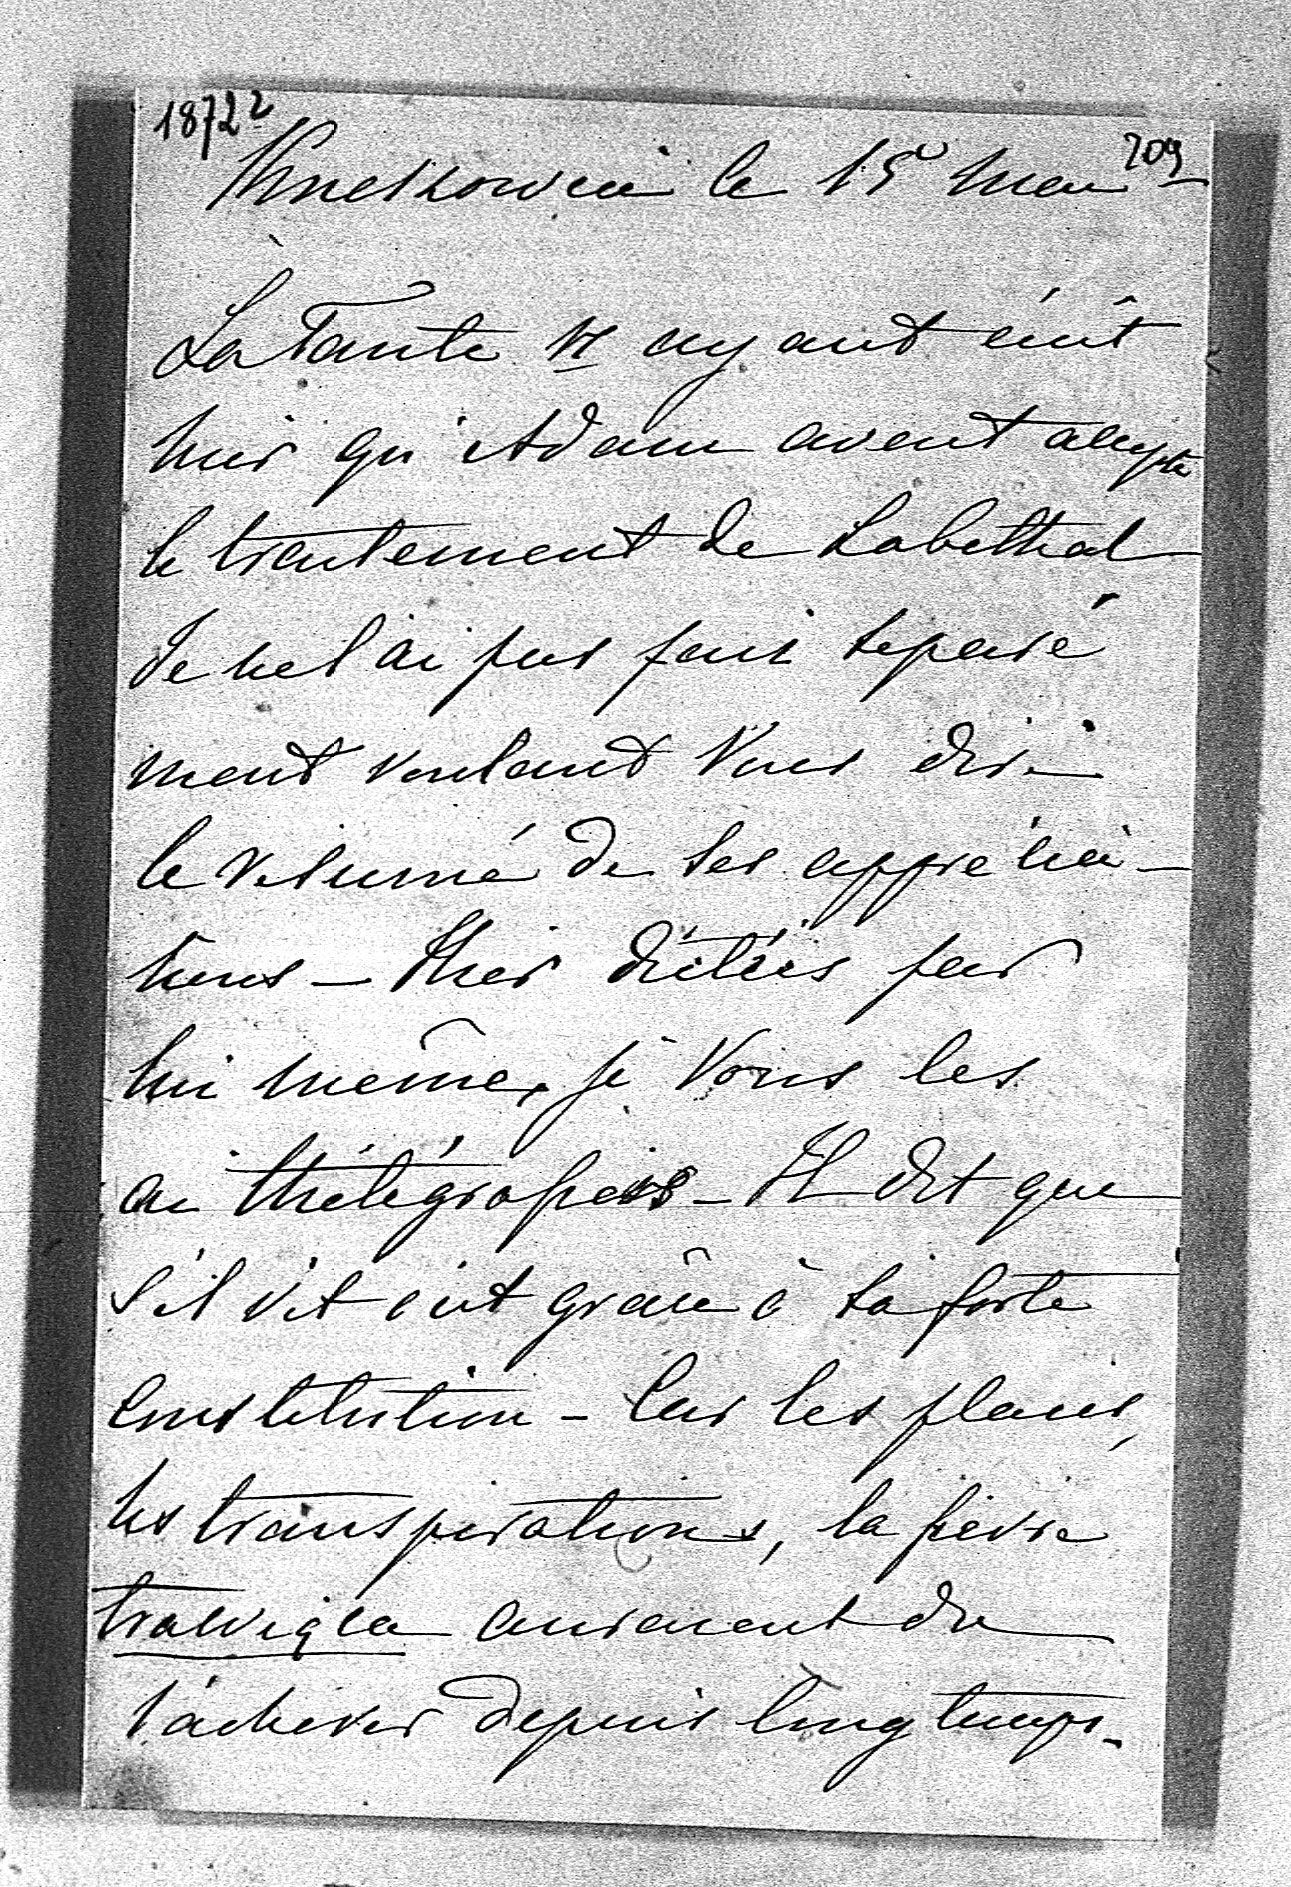 18722
709
le 15 Mai
La Tante N ayant écrit
hier qu'Adam avait accepté
le traitement de Labethal
Je ne l'ai pas fait séparé
ment voulant Vous dire
le résumé de ses apprécia-
tions - Hier dictées par
lui même, je Vous les
ai thélégrafiées - Il dit que
s'il vit c'est grâce à sa forte
constitution - Car les plaies,
les transpirations, la fièvre
trawiąca auraient du
l'achever depuis longtemps.